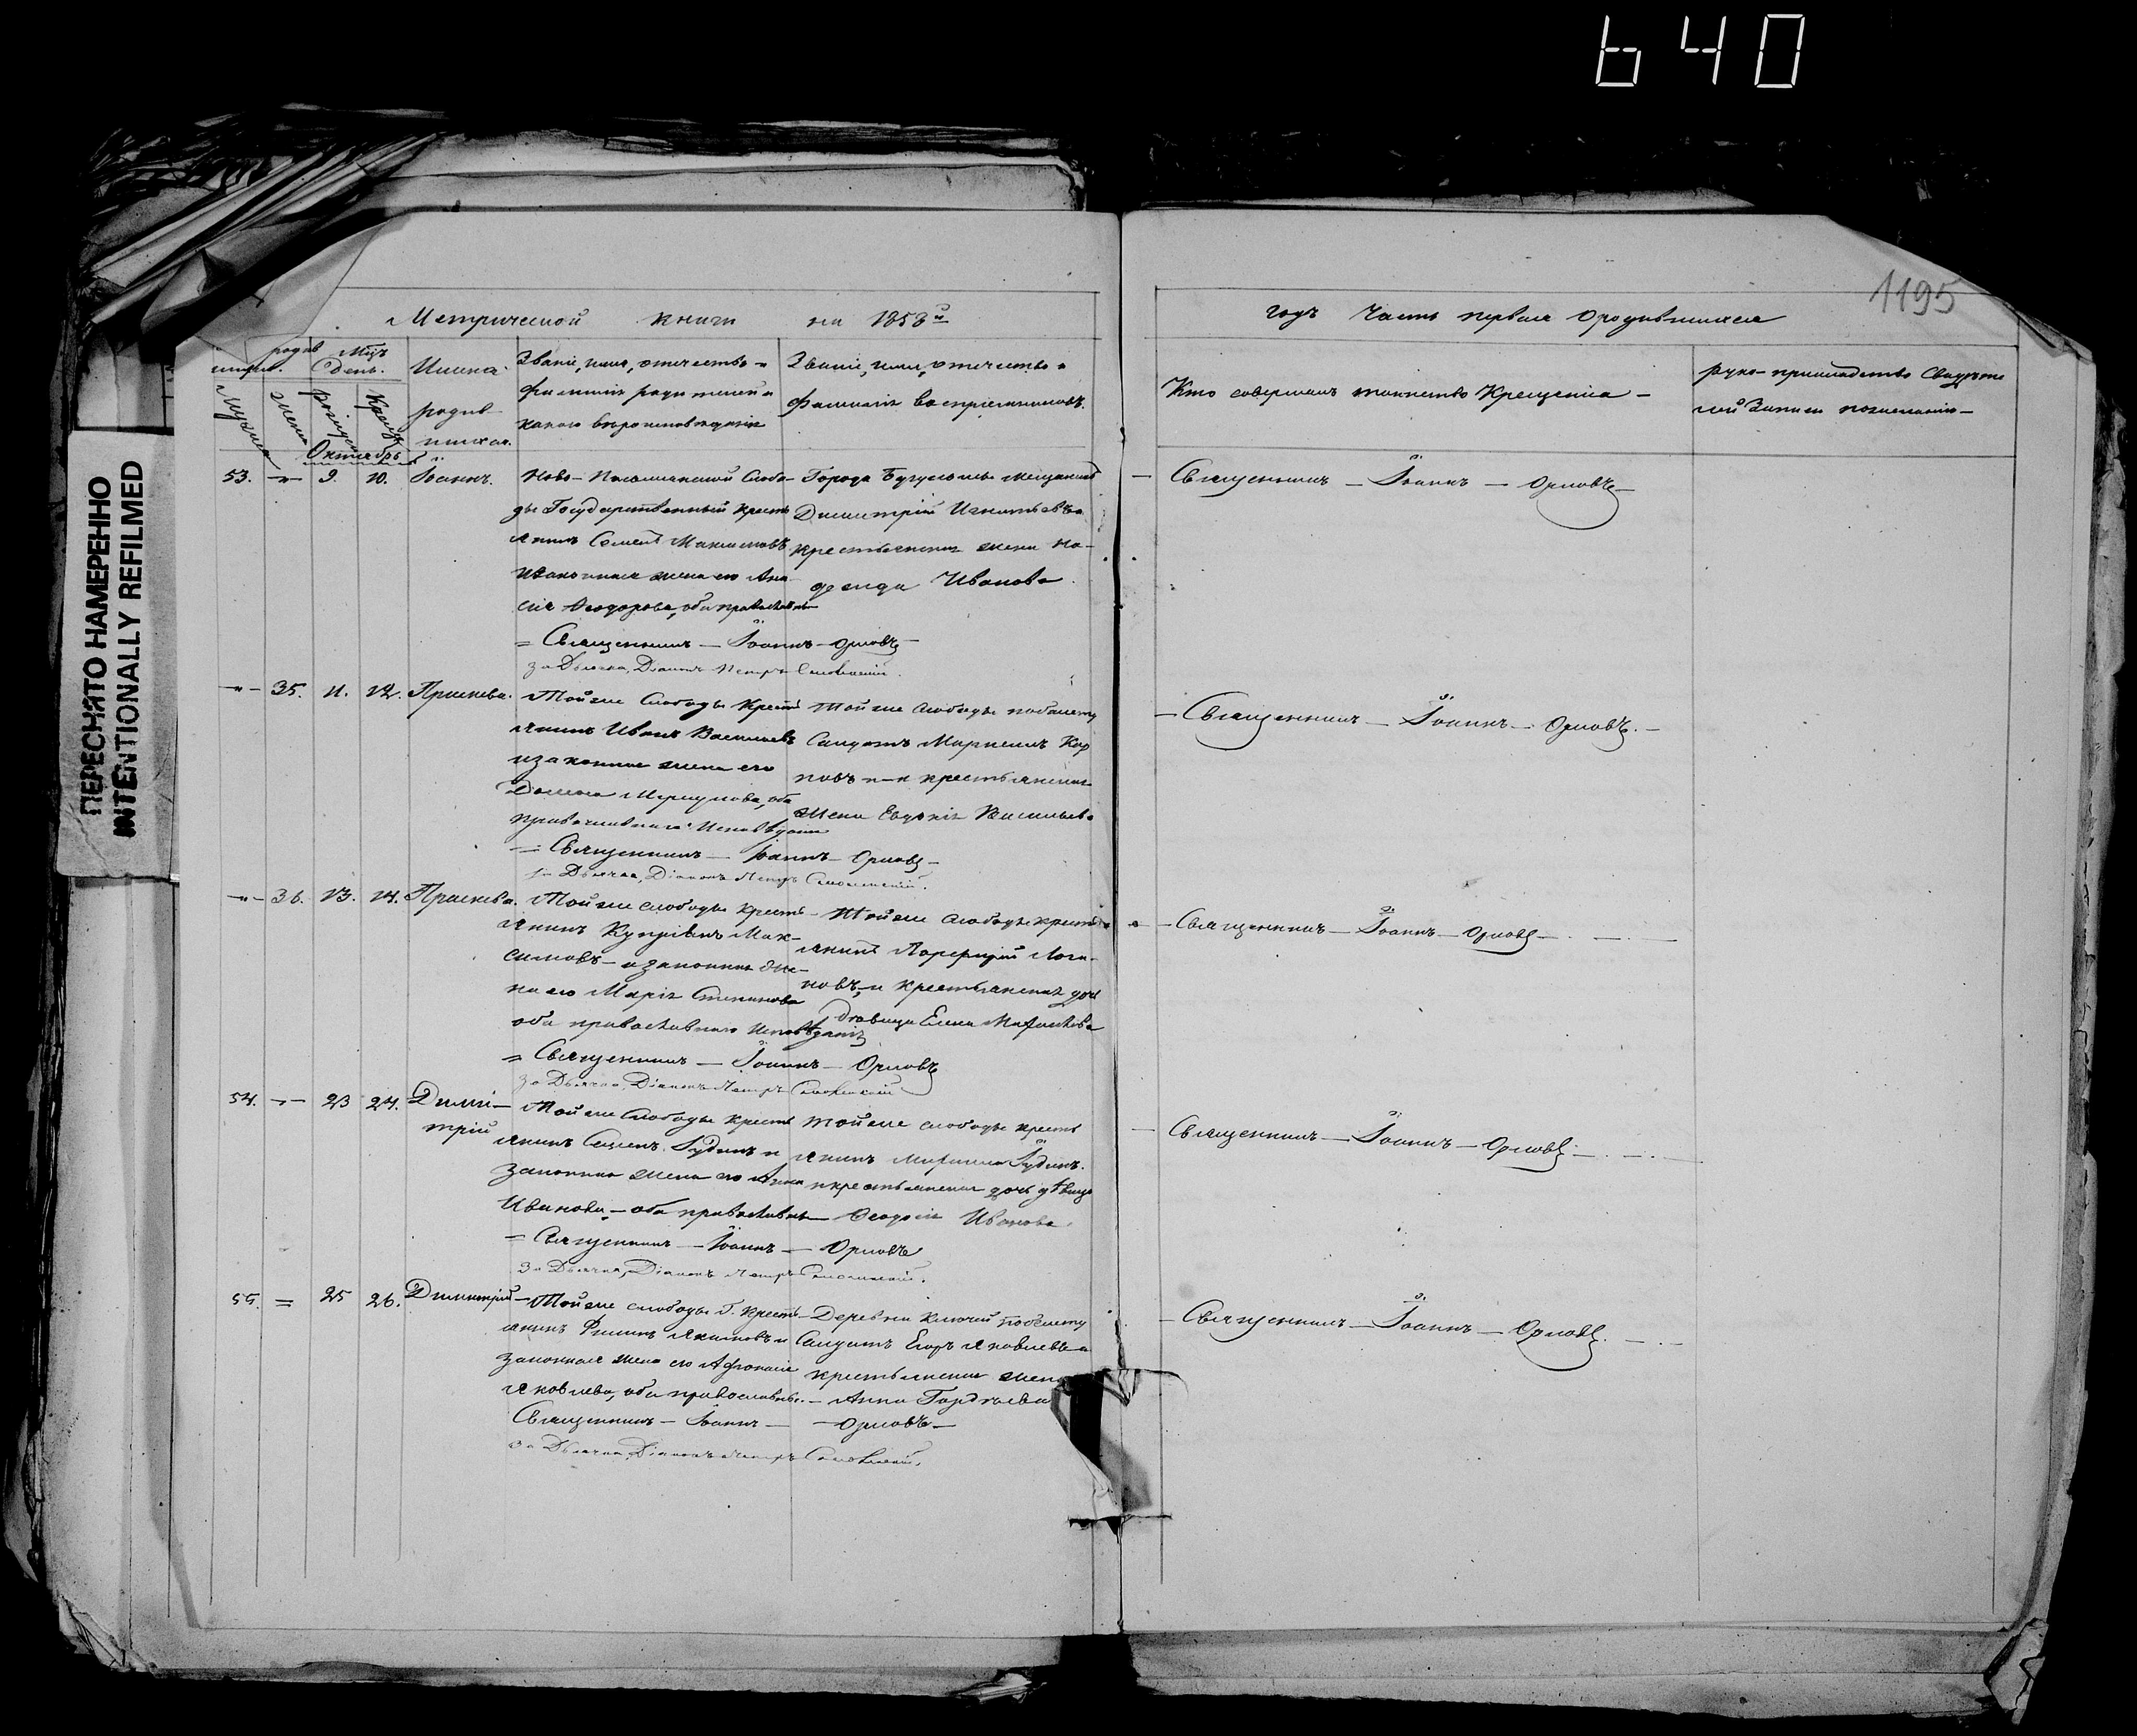 640
1195
ПЕРЕСНЯТО НАМЕРЕННО
INTENTIONALLY REFILMED
Метрической книги на 1853й
годъ Часть первая о родившихся
родив Мцъ
День.
Имена
родив
шихся.
Званіе, имя, отчество и
фамилія родителей и
какого вѣроисповѣданія
Званіе, имя, отечество и
фамилія воспріемниковъ.
Кто совершалъ таинство Крещенія —
руко-прикладство Свидѣте
лей Записи по желанію —
Октябрь
53. —"— 9. 10. Іоаннъ.
Государственный кресть
янинъ Семенъ Максимовъ
и законная жена его
Ѳеодорова, оба православн
= Священникъ — Іоаннъ — Орловъ —
За Дьячка, Діаконъ Петръ
Города Бугульмы мещанинъ
Димитрій Игнатьевъ и
крестьянская жена На-
дежда Иванова
— Священникъ — Іоаннъ — Орловъ —
—"— 35. 11. 12. Праскева.
Той же Слободы Кресть
янинъ Иванъ Васильевъ
и законная жена его
Домна оба
православнаго Исповѣдани
= Священникъ — Іоаннъ — Орловъ —
За Дьячка, Діаконъ Петръ
Той же Слободы
Салдатъ Кар
повъ и крестьянская
жена Евдокія Васильева
— Священникъ — Іоаннъ — Орловъ. —
—"— 36. 13. 14. Праскева.
Той же слободы Кресть-
янинъ Мак-
симовъ — и законная же-
на его Марія Степанова
оба православнаго Исповѣданія
= Священникъ — Іоаннъ — Орловъ
За Дьячка, Діаконъ Петръ
Той же Слободы кресть
янинъ Логи-
новъ, и крестьянская дочь
Елена
— Священникъ — Іоаннъ — Орловъ —
54. —"— 23 24. Дими-
трій
Той же Слободы кресть
янинъ Іудинъ и
законная жена его Анна
Иванова — оба православны
= Священникъ — Іоаннъ — Орловъ
За Дьячка, Діаконъ Петръ
Той же слободы кресть
янинъ Іудинъ.
и крестьянская дочь дѣвица
Ѳеодосія Иванова.
— Священникъ — Іоаннъ — Орловъ —
55. = 25 26. Димитрій
Той же слободы Г. Кресть-
янинъ Филипъ Якимовъ и
законная жена его
Яковлева, оба православны. —
Священникъ — Іоаннъ — Орловъ —
За Дьячка, Діаконъ Петръ
Деревни Ключей
Салдатъ Егоръ Яковлевъ и
крестьянская жена
Анна Гордѣева
— Священникъ — Іоаннъ — Орловъ. —